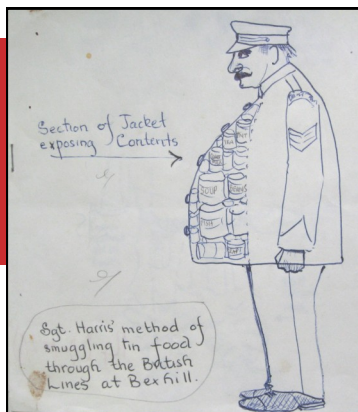 Section of Jacket
exposing Contents
SOUP
Sgt. Harris' method of
smuggling tin food
through the British
Lines at Bexhill.